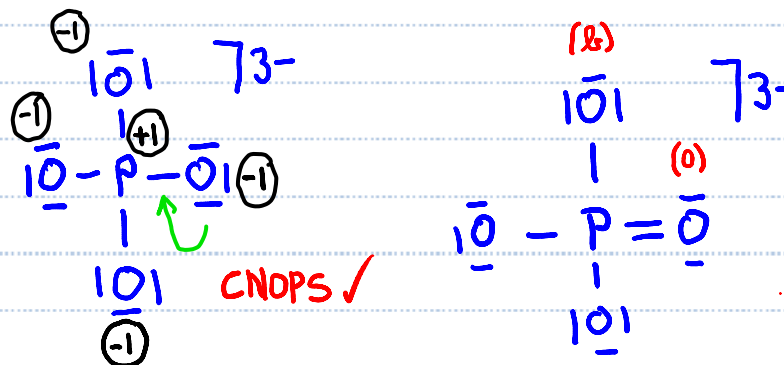 -1
|O| ]3-
-1 +1
|O - P - O| -1
|O|
-1
CNOPS ✓
(b)
|O| ]3-
(0)
|O - P = O
|O|